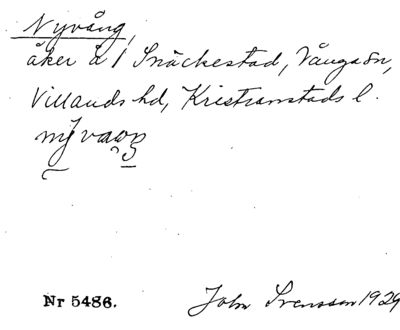 Nyvång,
åker å 1 Snäckestad, Vånga sn,
Villands hd, Kristianstads l.
Nr 5486. John Svensson 1929